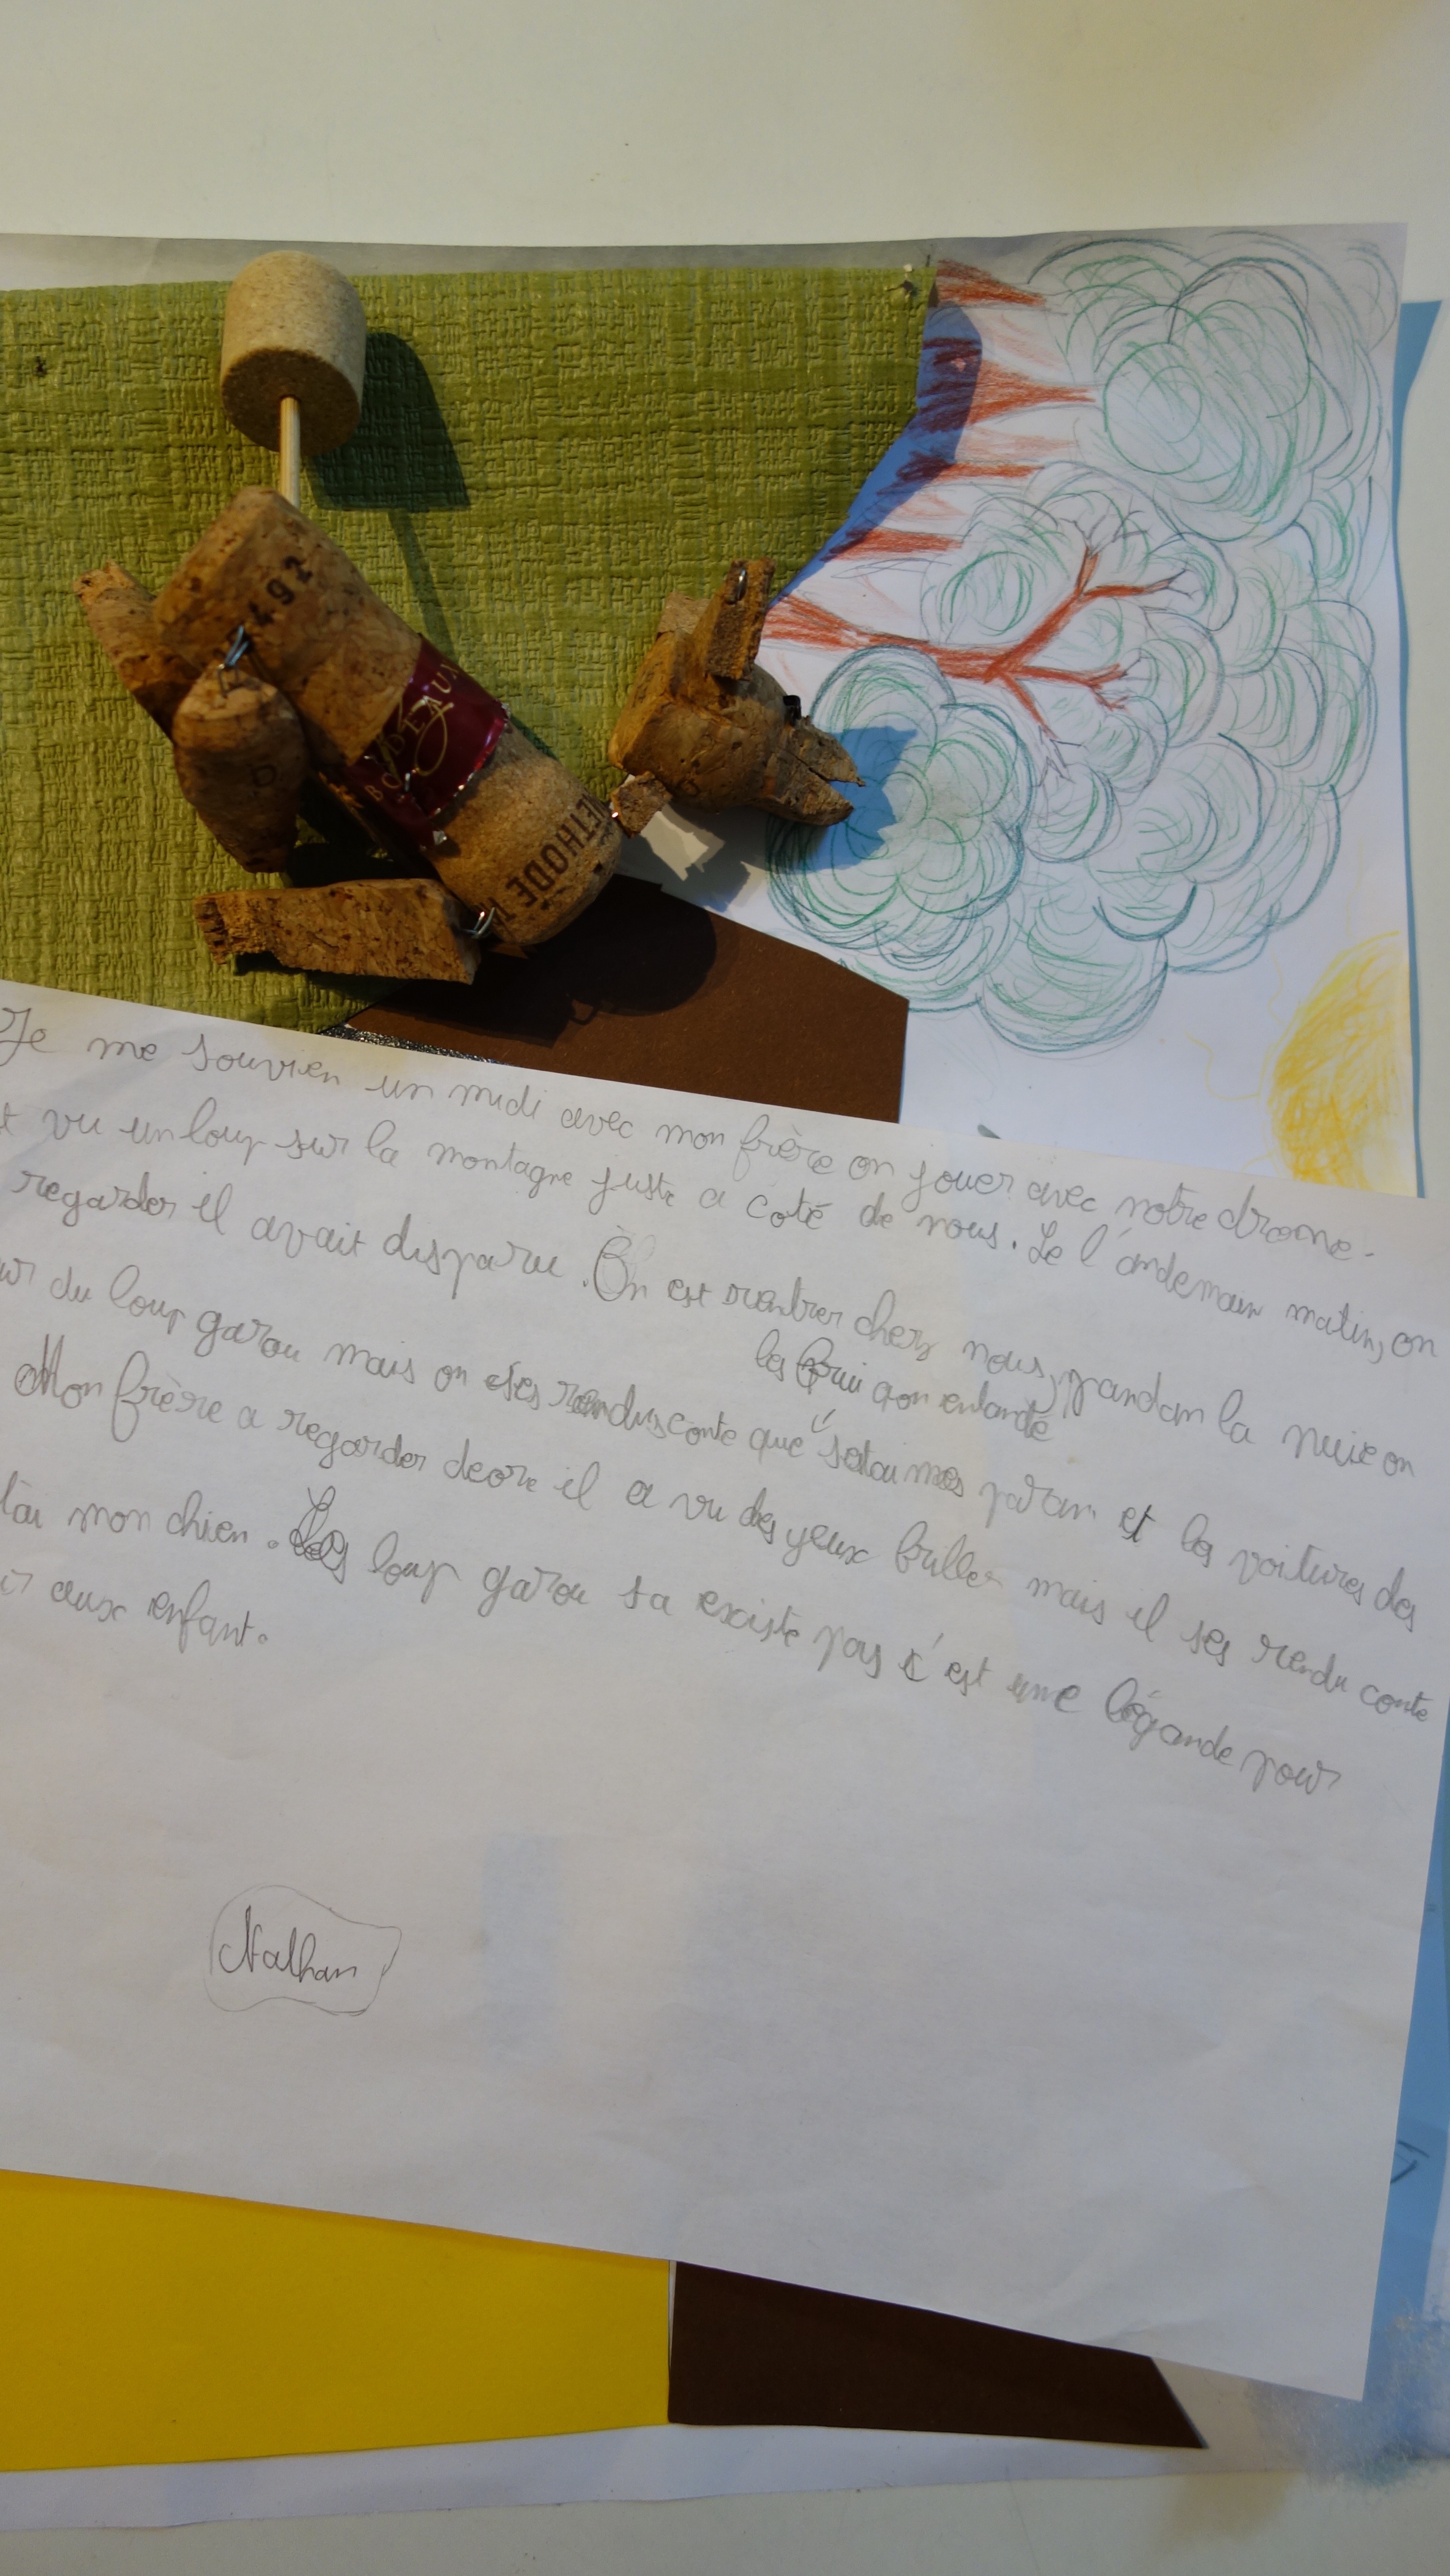 1492
BORDEAUX
METHODE
Je me souvien un midi avec mon frère on jouer avec notre drone.
t vu un loup sur la montagne juste a coté de nous. Le l'andemain matin, on
regarder il avait disparu. On est rentrer chez nous, pandan la nuie on
du loup garou mais on ses rendus conte que
les brui qon entandé
"setai mes paran et les voitures des
Mon frère a regarder deor il a vu des yeux briller mais il ses rendu conte
tai mon chien. Les loup garou sa existe pas c'est une légande pour
aux enfant.
Nathan